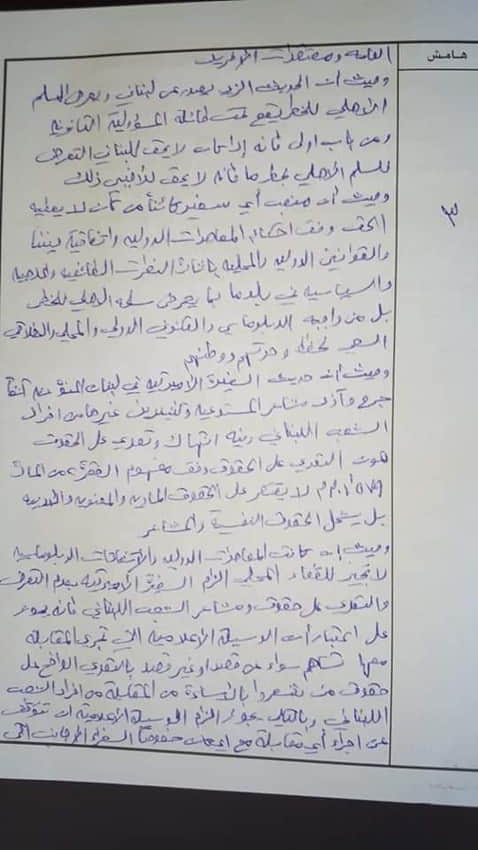 هامش
٣
العامة ومعتقدات الموطنين
وحيث ان الحديث الذي يصدر عن لبناني ويعرض السلم
الاهلي للخطر يقع تحت طائلة المسؤولية القانونية
ومن باب اولى فانه إذا كان لا يحق للبناني التعرض
للسلم الاهلي بخطر ما فانه لا يحق لأجنبي ذلك
وحيث ان منصب أي سفير كائناً من كان لا يعطيه
الحق وفق احكام المعاهدات الدولية واتفاقية فيينا
والقوانين الدولية والمحلية باثارة النعرات الطائفية والمذهبية
والسياسية في بلد ما بما يعرض سلمه الاهلي للخطر
بل من واجبه الدبلوماسي والقانوني الدولي والمحلي والاخلاقي
السعي لحفظ وحدتهم ووطنهم
وحيث ان حديث السفيرة الاميركية في لبنان المنوه عنه آنفاً
جرح وآذى مشاعر المستدعية وكثيرين غيرها من افراد
الشعب اللبناني وفيه انتهاك وتعدي على الحقوق
كون التعدي على الحقوق وفق مفهوم الفقرة من المادة
٥٧٩ أ.م.م لا يقتصر على الحقوق المادية والمعنوية والجسدية
بل يشمل الحقوق النفسية والمشاعر
وحيث إن كانت المعاهدات الدولية والاتفاقات الدبلوماسية
لا تجيز للقضاء المحلي الزام السفيرة الاميركية بعدم التعرض
والتعدي على حقوق ومشاعر الشعب اللبناني فانه يعود
على اعتبار ان الوسيلة الاعلامية التي تجري المقابلة
معها تساهم سواء عن قصد او غير قصد بالتعدي الواضح على
حقوق من تضرروا بالاساءة من المقابلة من افراد الشعب
اللبناني وبالتالي يجوز الزام الوسيلة الاعلامية ان تتوقف
عن اجراء أي مقابلة مع